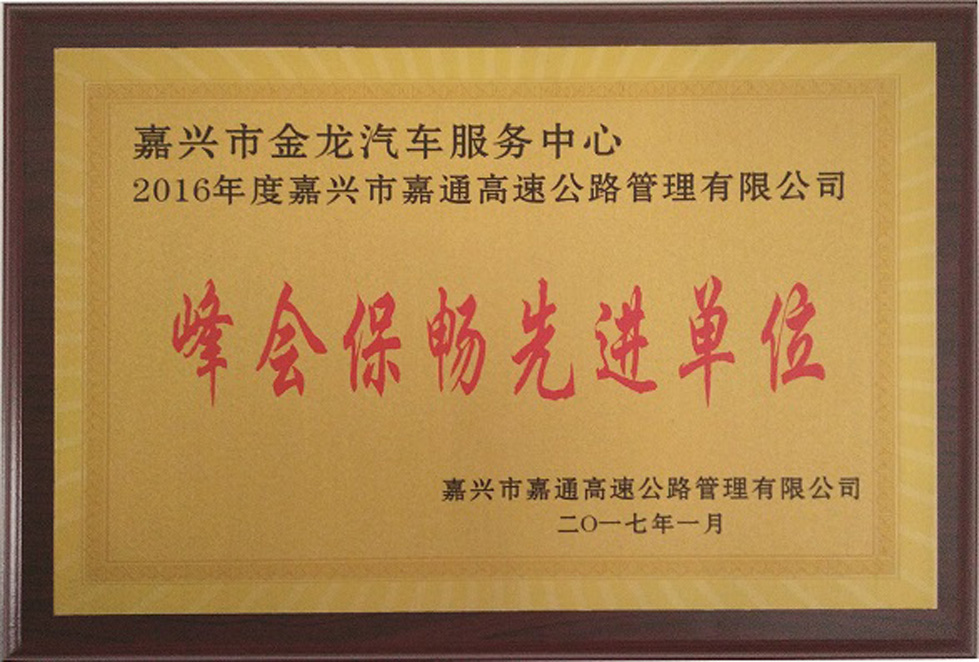 嘉兴市金龙汽车服务中心
2016年度嘉兴市嘉通高速公路管理有限公司
峰会保畅先进单位
嘉兴市嘉通高速公路管理有限公司
二〇一七年一月